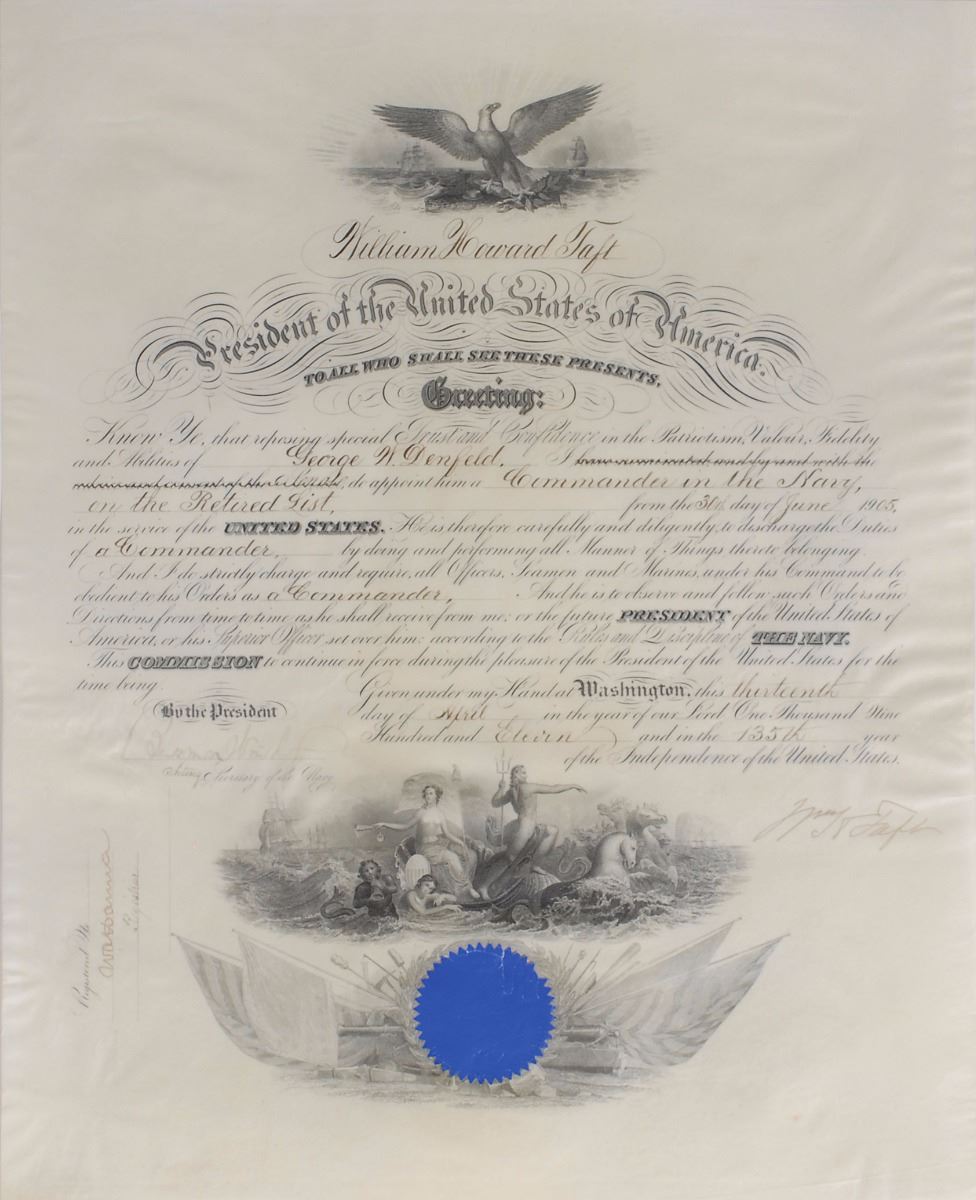 William Howard Taft
President of the United States of America.
TO ALL WHO SHALL SEE THESE PRESENTS,
Greeting:
Know Ye, that reposing special Trust and Confidence in the Patriotism, Valour, Fidelity
and Abilities of George W. Denfeld, I have nominated and by and with the
advice and consent of the Senate, do appoint him a Commander in the Navy,
on the Retired List, from the 30th day of June 1905,
in the service of the UNITED STATES. He is therefore carefully and diligently to discharge the Duties
of a Commander, by doing and performing all Manner of Things thereto belonging.
And I do strictly charge and require, all Officers, Seamen and Marines, under his Command to be
obedient to his Orders as a Commander, And he is to observe and follow such Orders and
Directions from time to time as he shall receive from me; or the future PRESIDENT of the United States of
America, or his Superior Officer set over him: according to the Rules and Discipline of THE NAVY.
This COMMISSION to continue in force during the pleasure of the President of the United States for the
time being.
Given under my Hand at Washington, this thirteenth
day of April in the year of our Lord One Thousand Nine
Hundred and Eleven and in the 135th year
of the Independence of the United States.
By the President
Acting Secretary of the Navy
Wm H Taft
Registered No